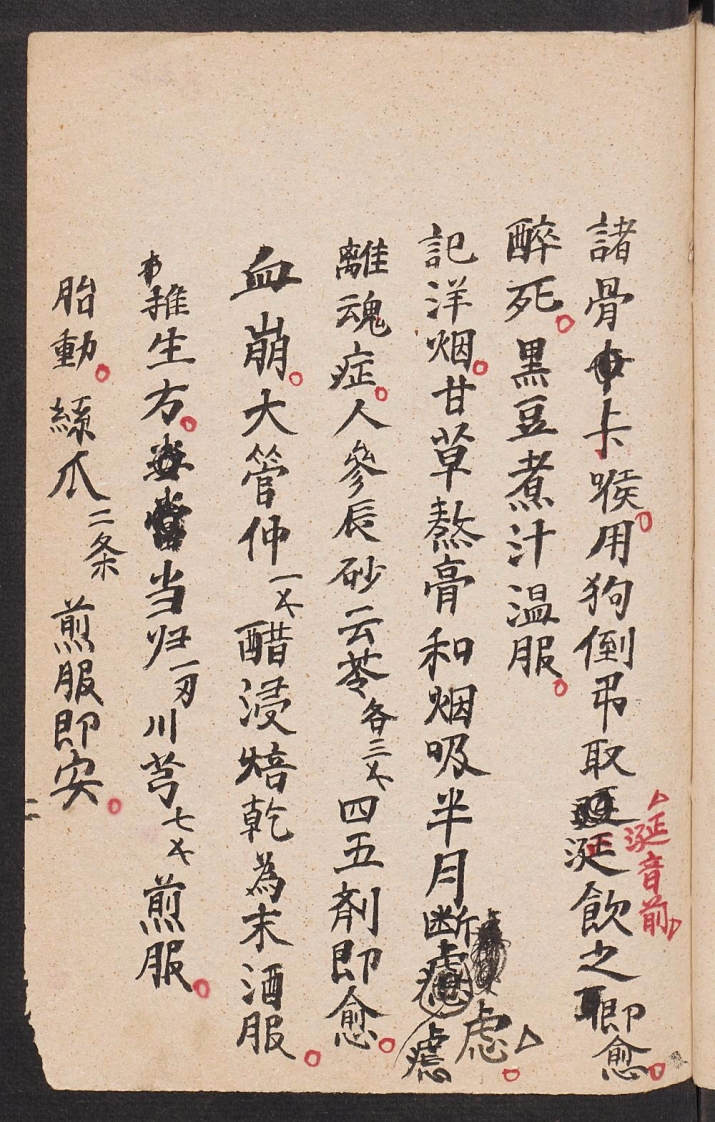 諸骨卡喉。用狗倒吊取涎飲之即愈。
涎音前
醉死。黑豆煮汁温服。
記洋烟。甘草熬膏和烟吸半月断虑。
离魂症。人參辰砂云苓各三大四五剤即愈。
血崩。大管仲一大醋浸焙乾為末酒服。
推生方。当归一刃川芎七大煎服。
胎動。絲瓜二条煎服即安。